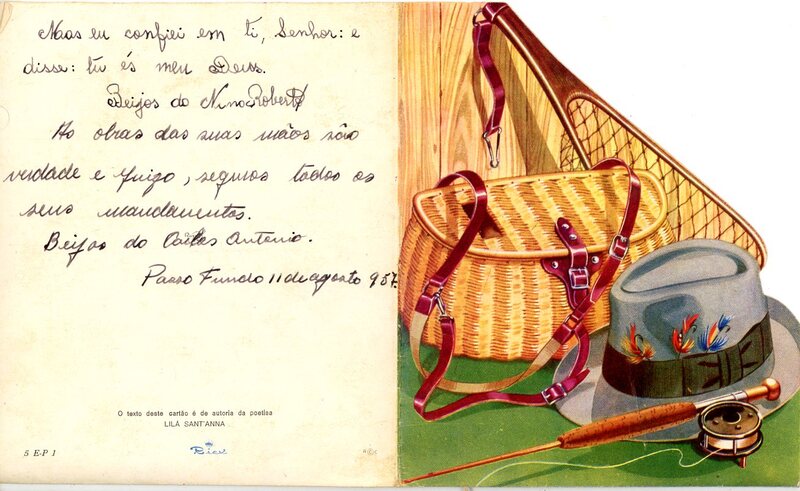 Mas eu confiei em ti, Senhor: e
disse: tu és meu Deus.
Beijos do Nino Roberto
As obras das suas mãos são
verdade e juizo, seguros todos os
seus mandamentos.
Beijos do Carlos Antonio.
Passo Fundo 11 de agosto 957
O texto deste cartão é de autoria da poetisa
LILÁ SANT'ANNA
5 E-P 1